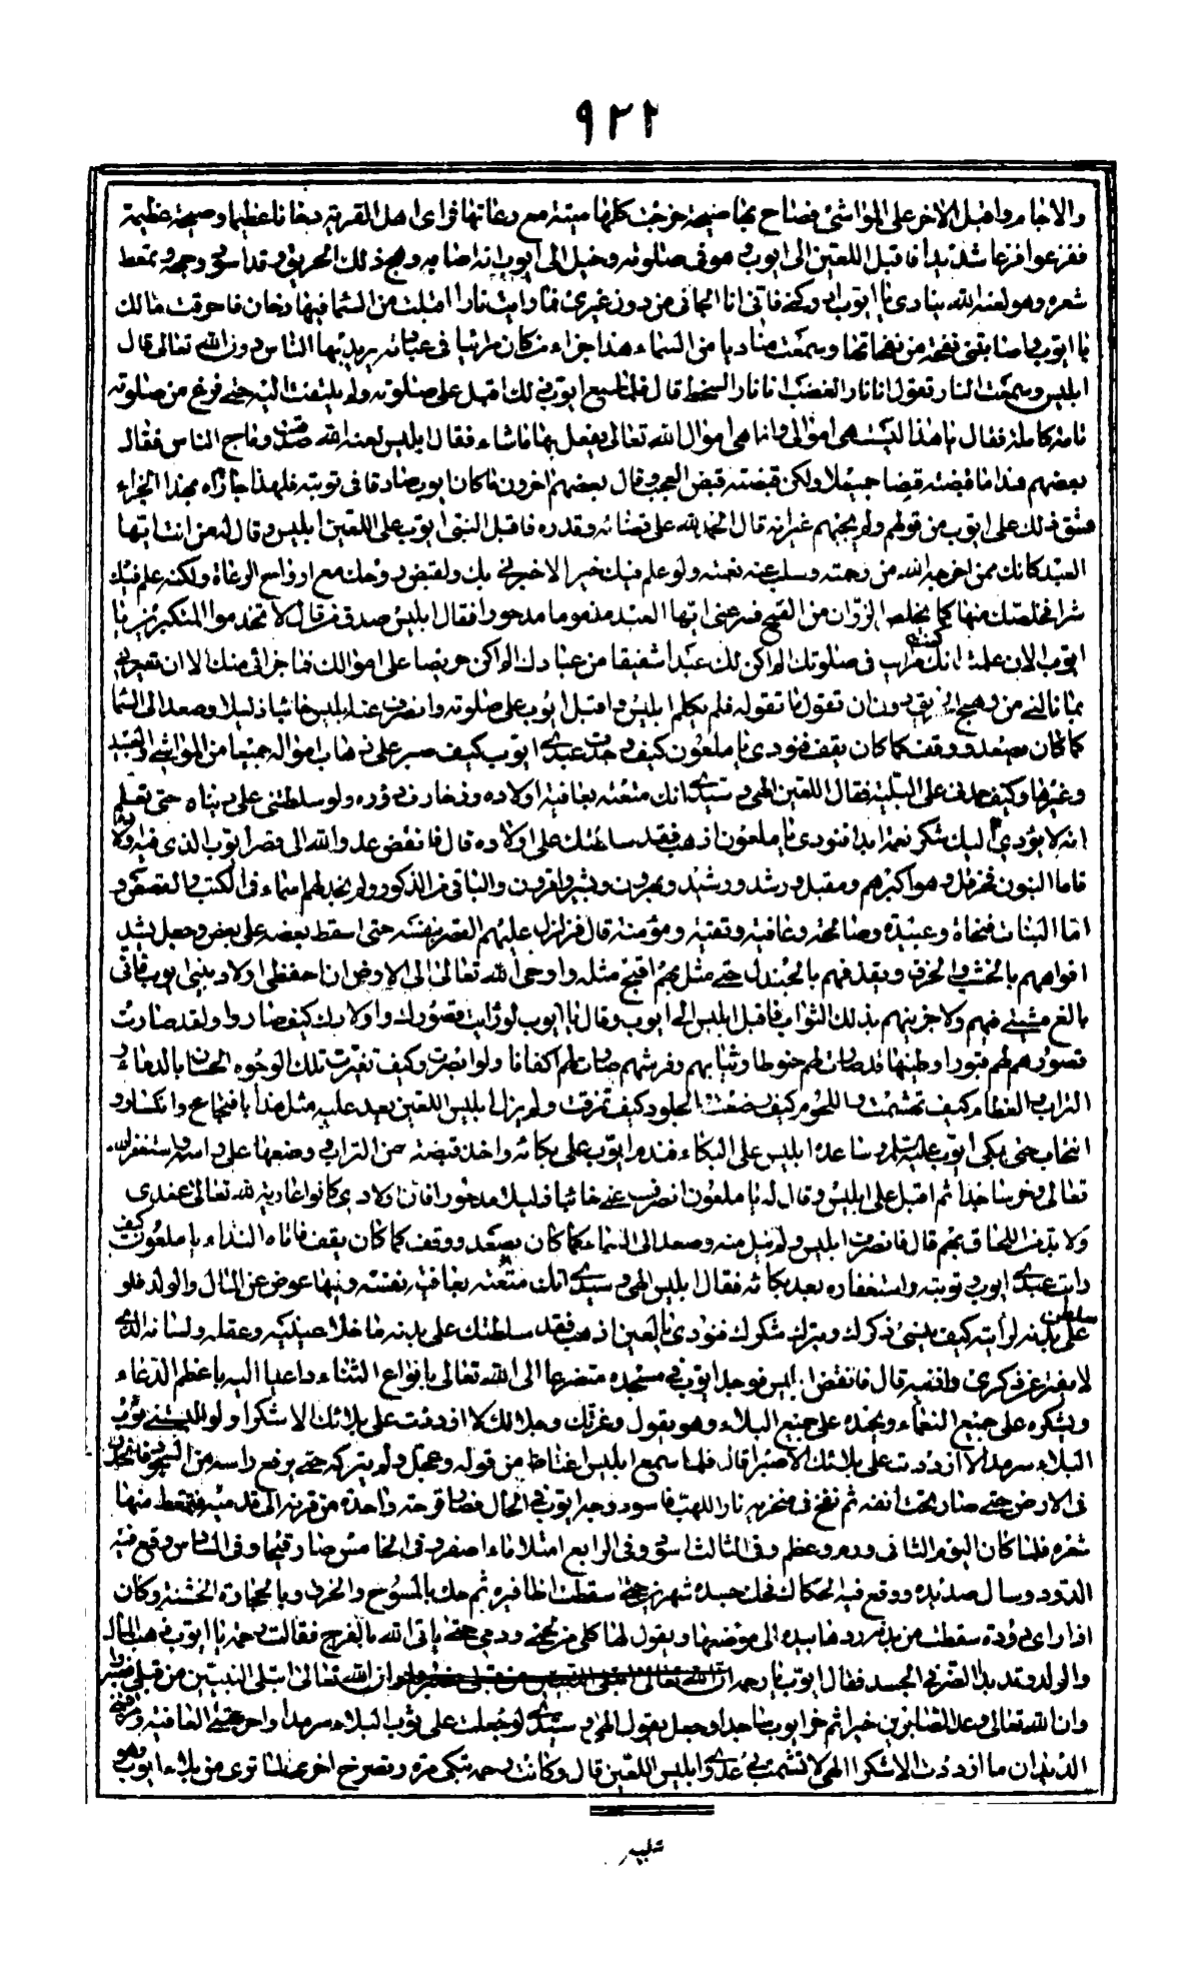 ٩٢٢
والاجام واقبل الاخر على المواشى فصاح بها صيحة خرجت كلها ميتة مع رعاتها فراى اهل القرية دخانا عظيما وصيحة عظيمة
ففزعوا فزعا شديدا فاقبل اللعين الى ايوب وهو فى صلوته وخيل الى ايوب انه اصابه وهج ذلك الحريق وقد اسود وجهه وتمعط
شعره وهو لعنه الله ينادى يا ايوب ادركنى فانى انا الجانى من دون غيرى فما رايت نارا اقبلت من السماء فيها دخان فاحرقت مالك
يا ايوب واصابتنى نفحة من نفحاتها وسمعت مناديا من السماء هذا جزاء من كان مرائيا فى عبادته يريد بها الناس دون الله تعالى قال
ابليس وسمعت النار تقول انا نار الغضب انا نار السخط قال فلما سمع ايوب ذلك اقبل على صلوته ولم يلتفت اليه حتى فرغ من صلوته
تامة كاملة فقال يا هذا ليست هى اموالى وانما هى اموال الله تعالى يفعل بها ما شاء فقال ابليس لعنه الله صدقت وماج الناس فقال
بعضهم هذا ما قبضته قبضا جميلا ولكن قبضته قبض العجب وقال بعضهم اخرون ما كان ايوب صادقا فى توبته فلهذا جازاه بهذا الجزاء
فشق ذلك على ايوب من قولهم ولم يجبهم غير انه قال الحمد لله على قضائه وقدره فاقبل النبى ايوب على اللعين ابليس وقال له من انت ايها
العبد كانك ممن اخرجه الله من رحمته وسلب عنه نعمته ولو علم فيك خير الاخبرنى بك ولقبض روحك مع ارواح الرعاة ولكنه علم فيك
شرا فخلصك منها كما يخلص الزوان من القمح فسر عنى ايها العبد مذموما مدحورا فقال ابليس صدق من قال لا تخدموا المتكبرين يا
ايوب الان علمت انك كنت مراب فى صلوتك الم اكن لك عبدا شفيقا من عبادك الم اكن حريصا على اموالك فما جزائى منك الا ان تعيرنى
بما نالنى من وهج الحريق دون ان تقول ما تقوله فلم يكلم ابليس واقبل ايوب على صلوته وانصرف عنه ابليس خائبا ذليلا وصعد الى السما
كما كان يصعد ووقف كما كان يقف فنودى يا ملعون كيف وجدت عبدى ايوب كيف صبر على ذهاب امواله جميعا من المواشى والعبيد
وغيرها وكيف حمدنى على البلية فقال اللعين الهى وسيدى انك متعته بعافية اولاده وزخارف دوره ولو سلطتنى على دنياه حتى تعلم
انه لا يؤدى اليك شكر نعمة ابدا فنودى يا ملعون اذهب فقد سلطتك على اولاده قال فانقض عدو الله الى قصر ايوب الذى فيه اولاده
فاما البنون فحرمل وهو اكبرهم ومقبل ورشد ورشيد وبهرون وبشير واقرون والباقى من الذكور ولم نجد لهم اسماء فى الكتب والقصص و
اما البنات فنجاة وعبيدة وصالحة وعافية وتقية ومؤمنة قال فزلزل عليهم القصر بنفسه حتى اسقط بعضه على بعض وجعل يشد
افواههم بالخشب والخزف ويقذفهم بالجندل حتى مثل بهم اقبح مثلة واوحى الله تعالى الى الارض ان احفظى اولاد نبيى ايوب فانى
بالغ مشيتى فيهم ولاجزينهم بذلك الثواب فاقبل ابليس الى ايوب وقال يا ايوب لو رايت قصورك واولادك كيف صاروا ولقد صارت
قصورهم لهم قبورا وطينها قد صارت لهم حنوطا وثيابهم وفرشهم صارت لهم اكفانا ولو ابصرت وكيف تغيرت تلك الوجوه الحسان بالدماء و
التراب والعظام كيف تهشمت واللحوم كيف رضعت الجلود كيف تمزقت ولم يزل ابليس اللعين يعيد عليه مثل هذا بافجاع وانكسار و
انتحاب حتى بكى ايوب عليه السلم وساعده ابليس على البكاء فندم ايوب على بكائه واخذ قبضة من التراب وضعها على راسه واستغفر الله
تعالى وخر ساجدا ثم اقبل على ابليس وقال له يا ملعون انصرف عنى خائبا ذليلا مدحورا فان اولادى كانوا عارية لله تعالى عندى
ولا بد من اللحاق بهم قال فانصرف ابليس ولم ينل منه وصعد الى السماء كما كان يصعد ووقف كما كان يقف فاتاه النداء يا ملعون كيف
رايت عبدى ايوب وتوبته واستغفاره بعد بكائه فقال ابليس الهى وسيدى انك متعته بعافية نفسه وفيها عوض عن المال والولد فلو
سلطتنى على بدنه لرايته كيف ينسى ذكرك ويترك شكرك فنودى يا لعين اذهب فقد سلطتك على بدنه ما خلا عينيه وعقله ولسانه الذى
لا يفتر عن ذكرى واذنيه قال فانقض ابليس فوجد ايوب فى مسجده متضرعا الى الله تعالى بانواع الثناء وداعيا اليه باعظم الدعاء
ويشكره على جميع النعماء ويحمده على جميع البلاء وهو يقول وعزتك وجلالك لا ازددت على بلائك الا شكرا ولو البستنى ثوب
البلاء سرمدا لا ازددت على بلائك الا صبرا قال فلما سمع ابليس اغتاظ من قوله وعجل ولم يتركه حتى يرفع راسه من السجود
فى الارض حتى صار تحت انفه ثم نفخ فى منخريه نار اللهب فاسود وجه ايوب فى الحال فصار قرحة واحدة من قرنه الى قدميه وتمعط منها
شعره فلما كان اليوم الثانى ورم وعظم وفى الثالث اسود وفى الرابع امتلا ماء اصفر وفى الخامس صار قيحا وفى السادس وقع فيه
الدود وسال صديده ووقع فيه الحكاك فحك جسده شهرين حتى سقطت اظافيره ثم حك بالمسوح والخزف وبالحجارة الخشنة وكان
اذا راى دودة سقطت من بدنه ردها بيده الى موضعها ويقول لها كلى من لحمى ودمى حتى ياتى الله بالفرج فقالت رحمة يا ايوب ذهب المال
والولد وقد بدا الضر فى الجسد فقال ايوب يا رحمة ان الله تعالى ابتلى النبيين من قبلى فصبروا
وان الله تعالى وعد الصابرين خيرا ثم خر ايوب ساجدا وجعل يقول الهى وسيدى لو جعلت على ثوب البلاء سرمدا وحرمتنى العافية ومزقنى
الديدان ما ازددت الا شكرا الهى لا تشمت بى عدوى ابليس اللعين قال وكانت رحمة تبكى مرة وتصرخ اخرى لما ترى من بلاء ايوب وهو